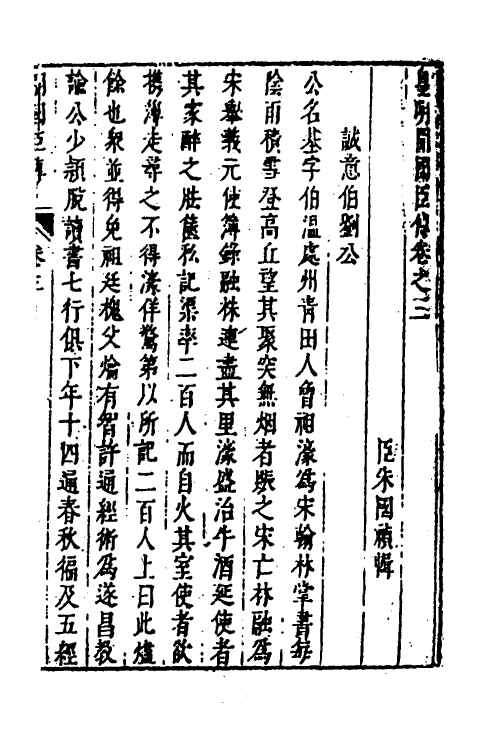 皇明開國臣傳卷之三
臣朱國禎輯
誠意伯劉公
公名基字伯溫處州青田人曾祖濠爲宋翰林掌書每
陰雨積雪登高丘望其聚突無烟者賑之宋亡林融爲
宋舉義元使簿錄融株連盡其里濠盛治牛酒延使者
其家醉之胠篋私記渠率二百人而自火其室使者欲
榜簿走尋之不得濠佯驚第以所記二百人上曰此燼
餘也衆並得免祖廷槐父爚有智許通經術爲遂昌教
諭公少穎脫讀書七行俱下年十四通春秋徧及五經
開國臣傳
卷三